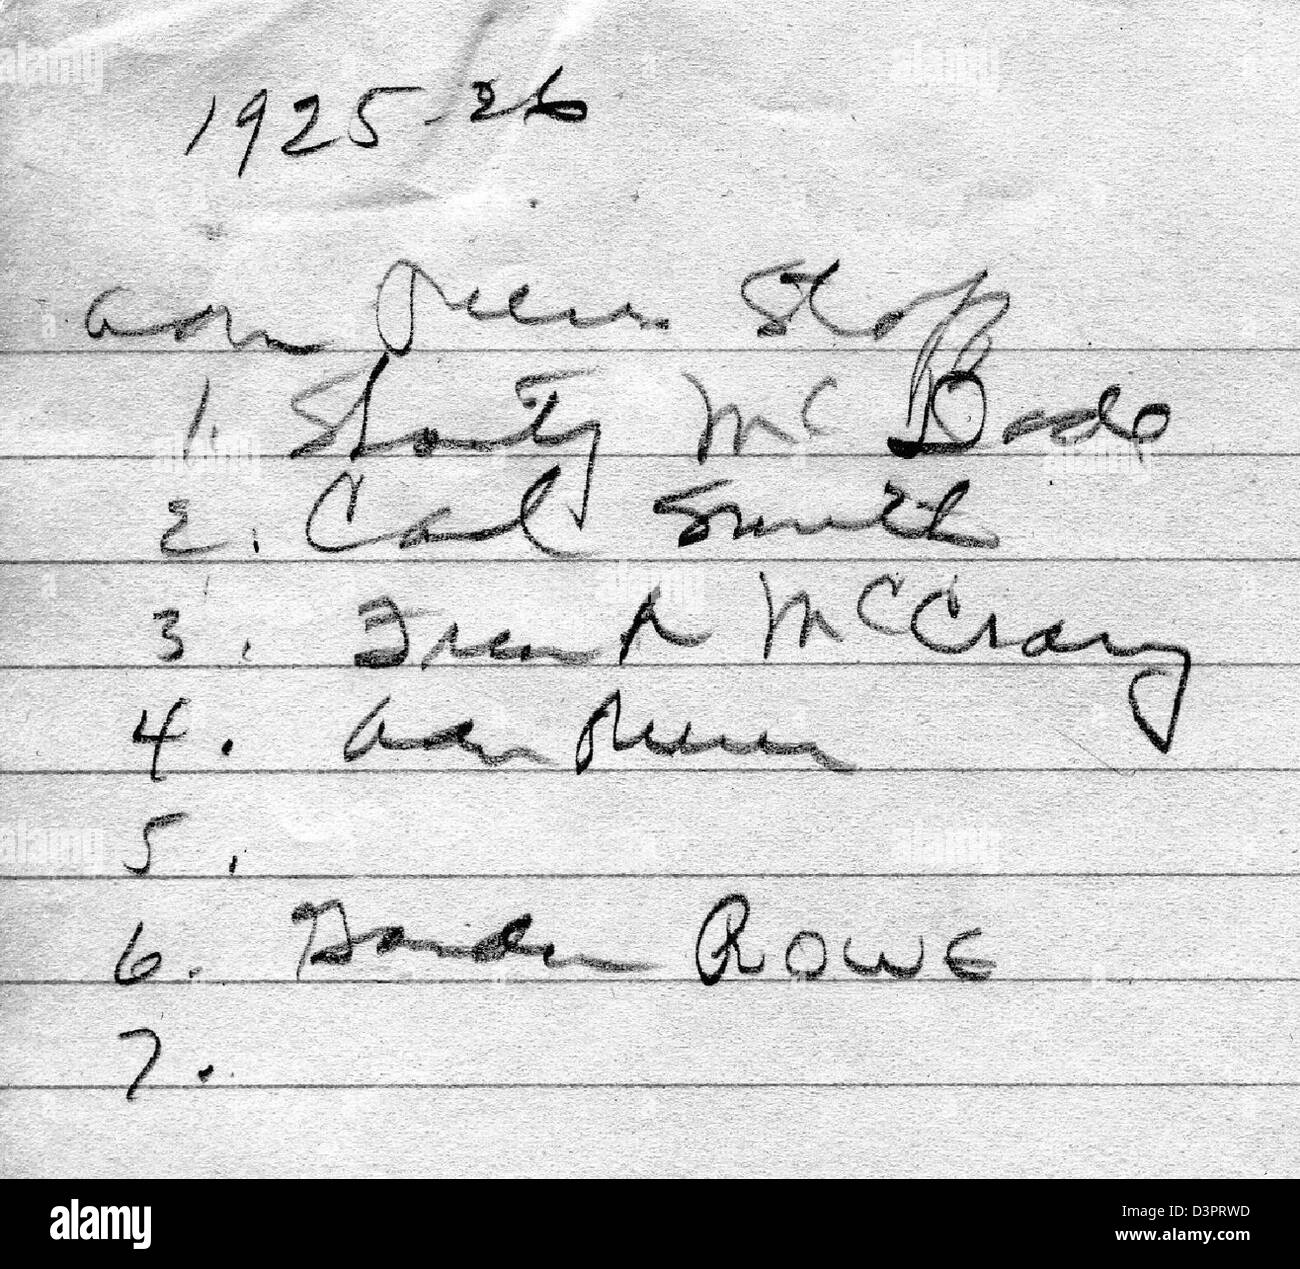 1925-26
Shop
1. Shorty McDade
2. Carl Smith
3. Frank McCrary
4.
5.
6. Gordon ROWE
7.
alamy
Image ID: D3PRWD
www.alamy.com